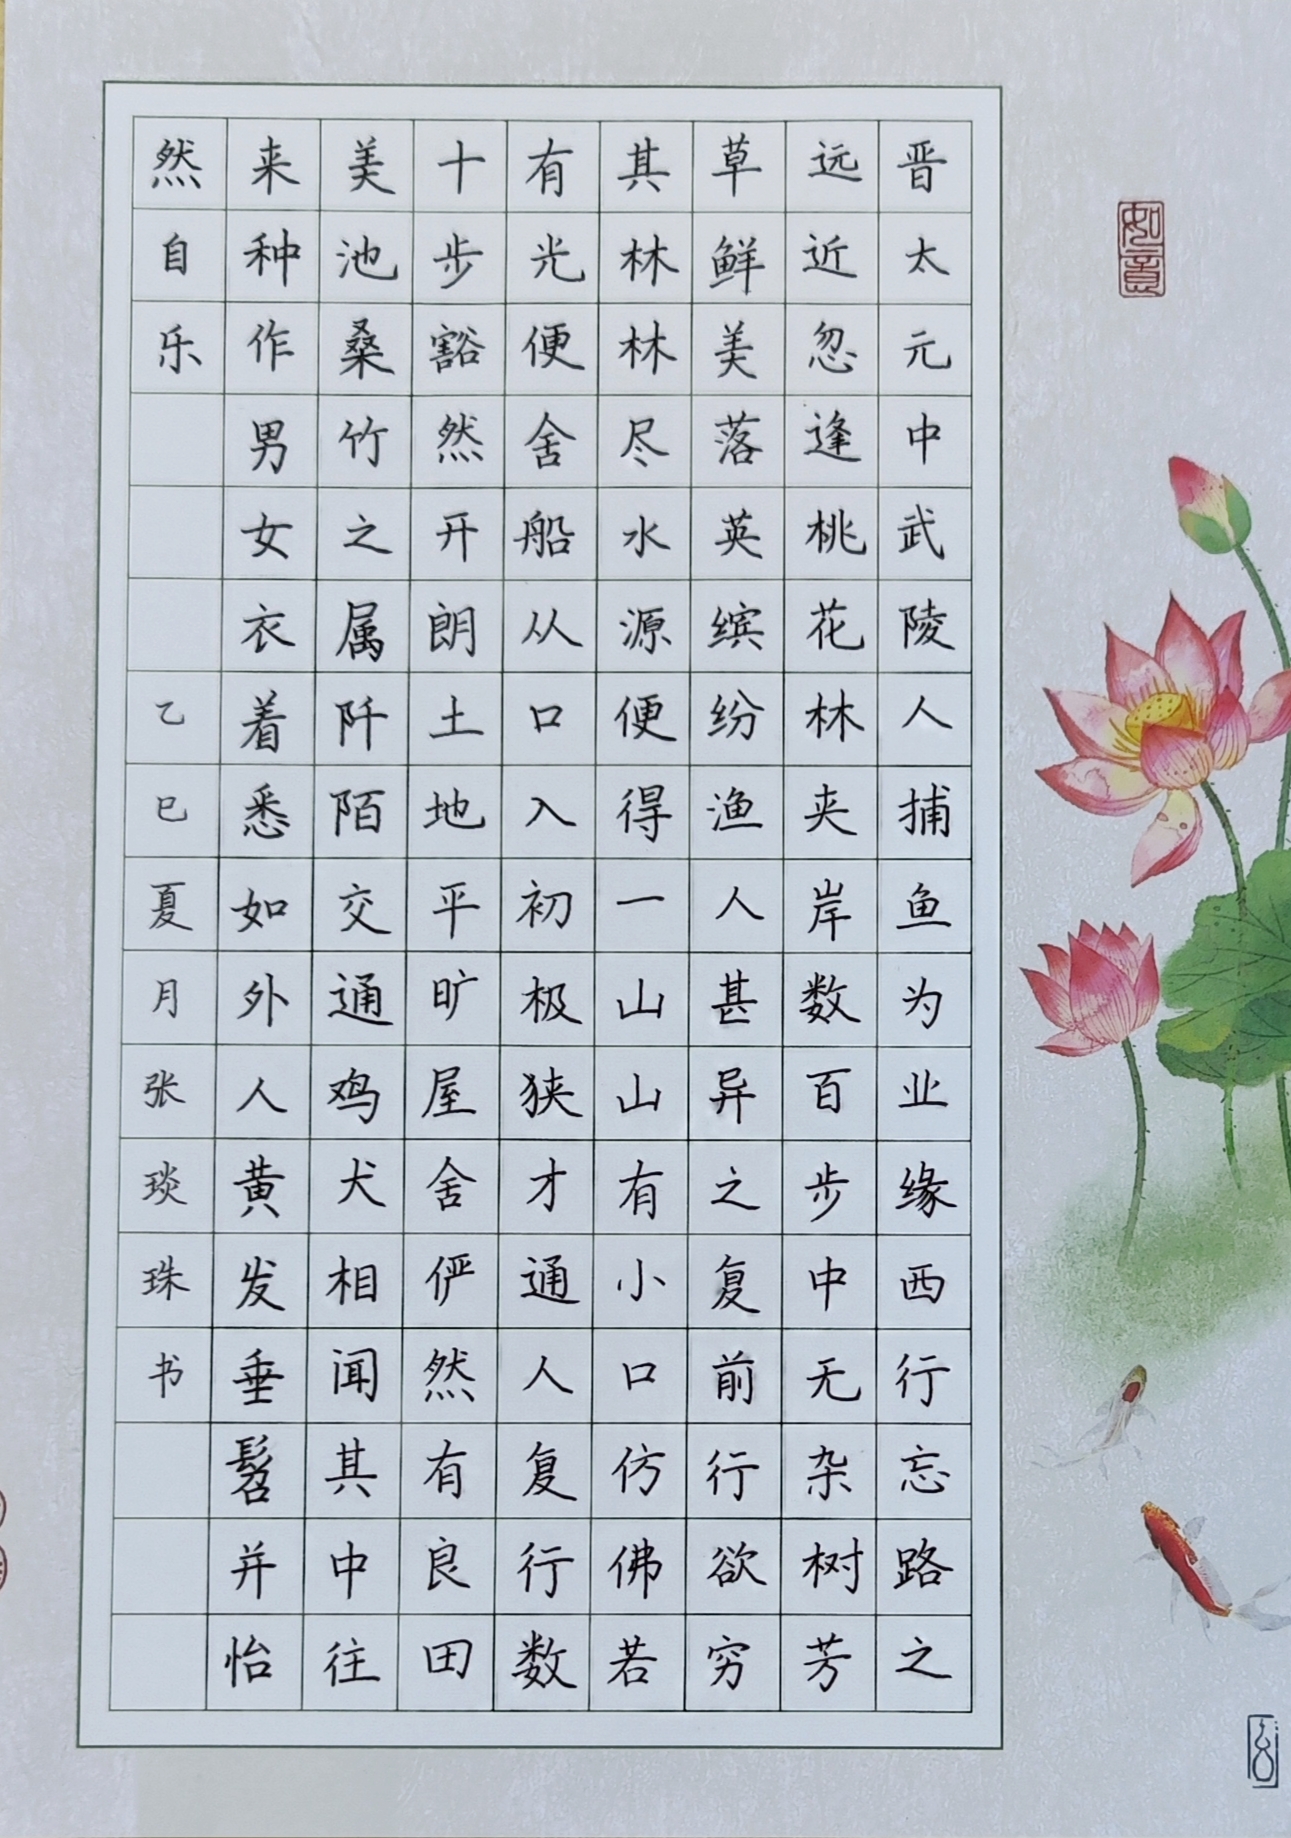 晋太元中武陵人捕鱼为业缘西行忘路之
远近忽逢桃花林夹岸数百步中无杂树芳
草鲜美落英缤纷渔人甚异之复前行欲穷
其林林尽水源便得一山山有小口仿佛若
有光便舍船从口入初极狭才通人复行数
十步豁然开朗土地平旷屋舍俨然有良田
美池桑竹之属阡陌交通鸡犬相闻其中往
来种作男女衣着悉如外人黄发垂髫并怡
然自乐
乙巳夏月张琰珠书
如意